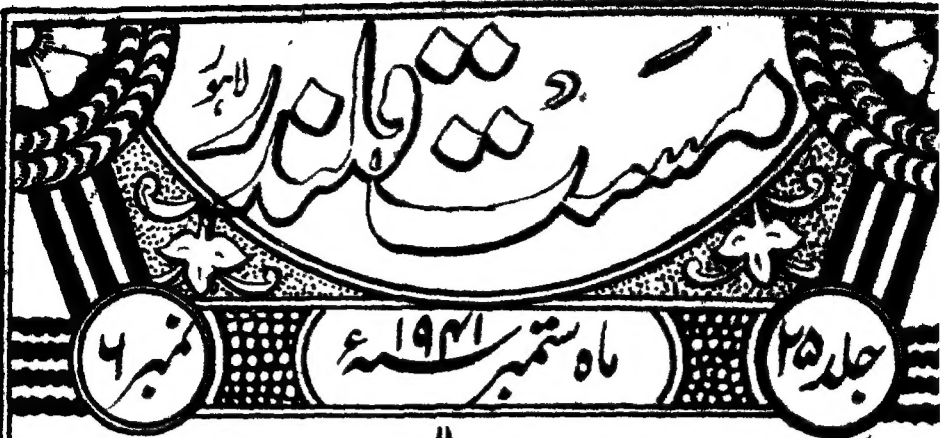 مست قلندر لاہور
جلد ۲۵
ماہ ستمبر ۱۹۴۱ء
نمبر ۶